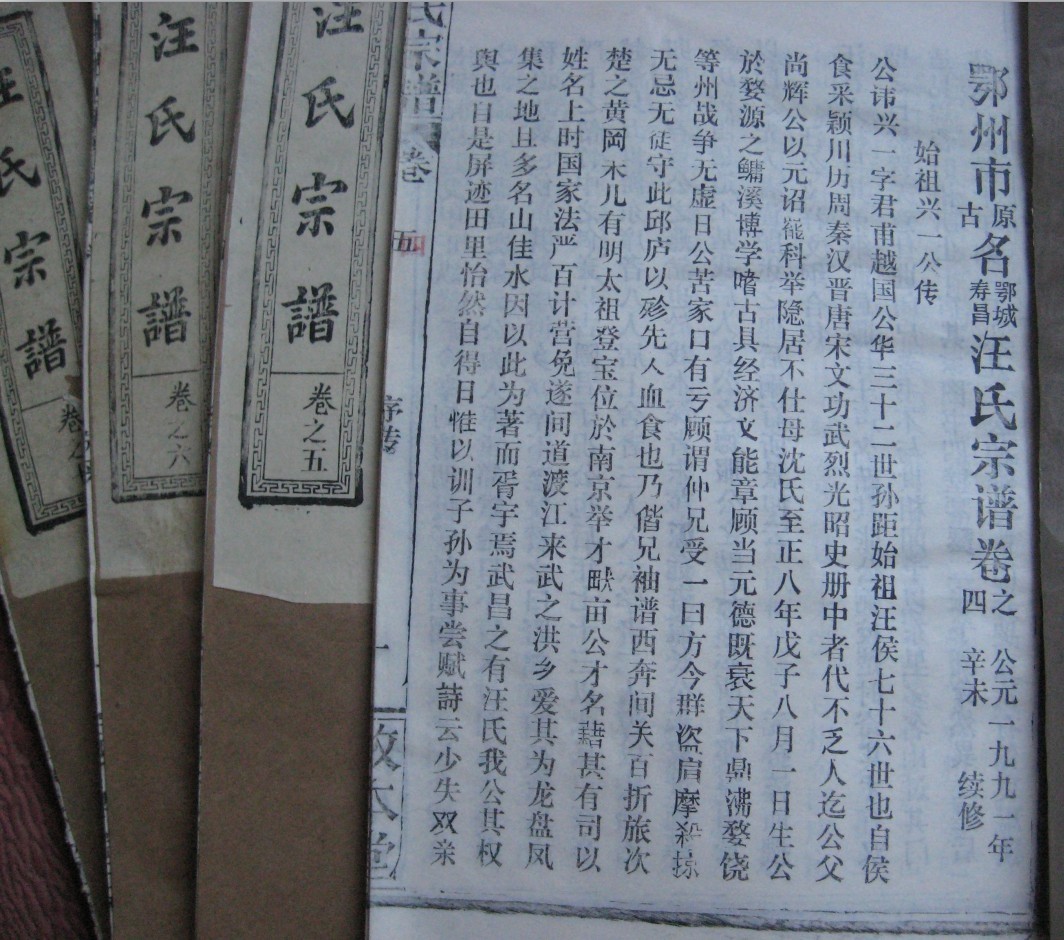 鄂州市原名鄂城古寿昌汪氏宗谱卷之四 公元一九九一年辛未 续修
始祖兴一公传
公讳兴一字君甫越国公华三十二世孙距始祖汪侯七十六世也自侯
食采颖川历周秦汉晋唐宋文功武烈光昭史册中者代不乏人迄公父
尚辉公以元诏能科举隐居不仕母沈氏至正八年戊子八月一日生公
於婺源之鳙溪博学嗜古具经济文能章顾当元德既衰天下鼎沸婺饶
等州战争无虚日公苦家口有亏顾谓仲兄受一曰方今群盗肩摩殺掠
无忌无徒守此邱庐以殄先人血食也乃偕兄袖谱西奔间关百折旅次
楚之黄冈未几有明太祖登宝位於南京举才畎亩公才名藉甚有司以
姓名上时国家法严百计营免遂间道渡江来武之洪乡爱其为龙盘凤
集之地且多名山佳水因以此为著而胥宇焉武昌之有汪氏我公其权
舆也自是屏迹田里怡然自得日惟以训子孙为事尝赋詩云少失双亲
氏宗譜 卷 五 序传 一 敦本堂
汪氏宗譜 卷之五
汪氏宗譜 卷之六
汪氏宗譜 卷之